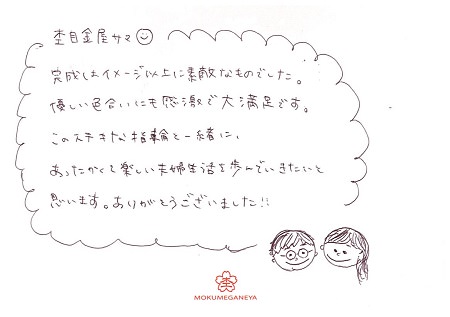 杢目金屋サマ
完成はイメージ以上に素敵なものでした。
優しい色合いにも感激で大満足です。
このステキな指輪と一緒に、
あったかくて楽しい夫婦生活を歩んでいきたいと
思います。ありがとうございました!!
杢
MOKUMEGANEYA